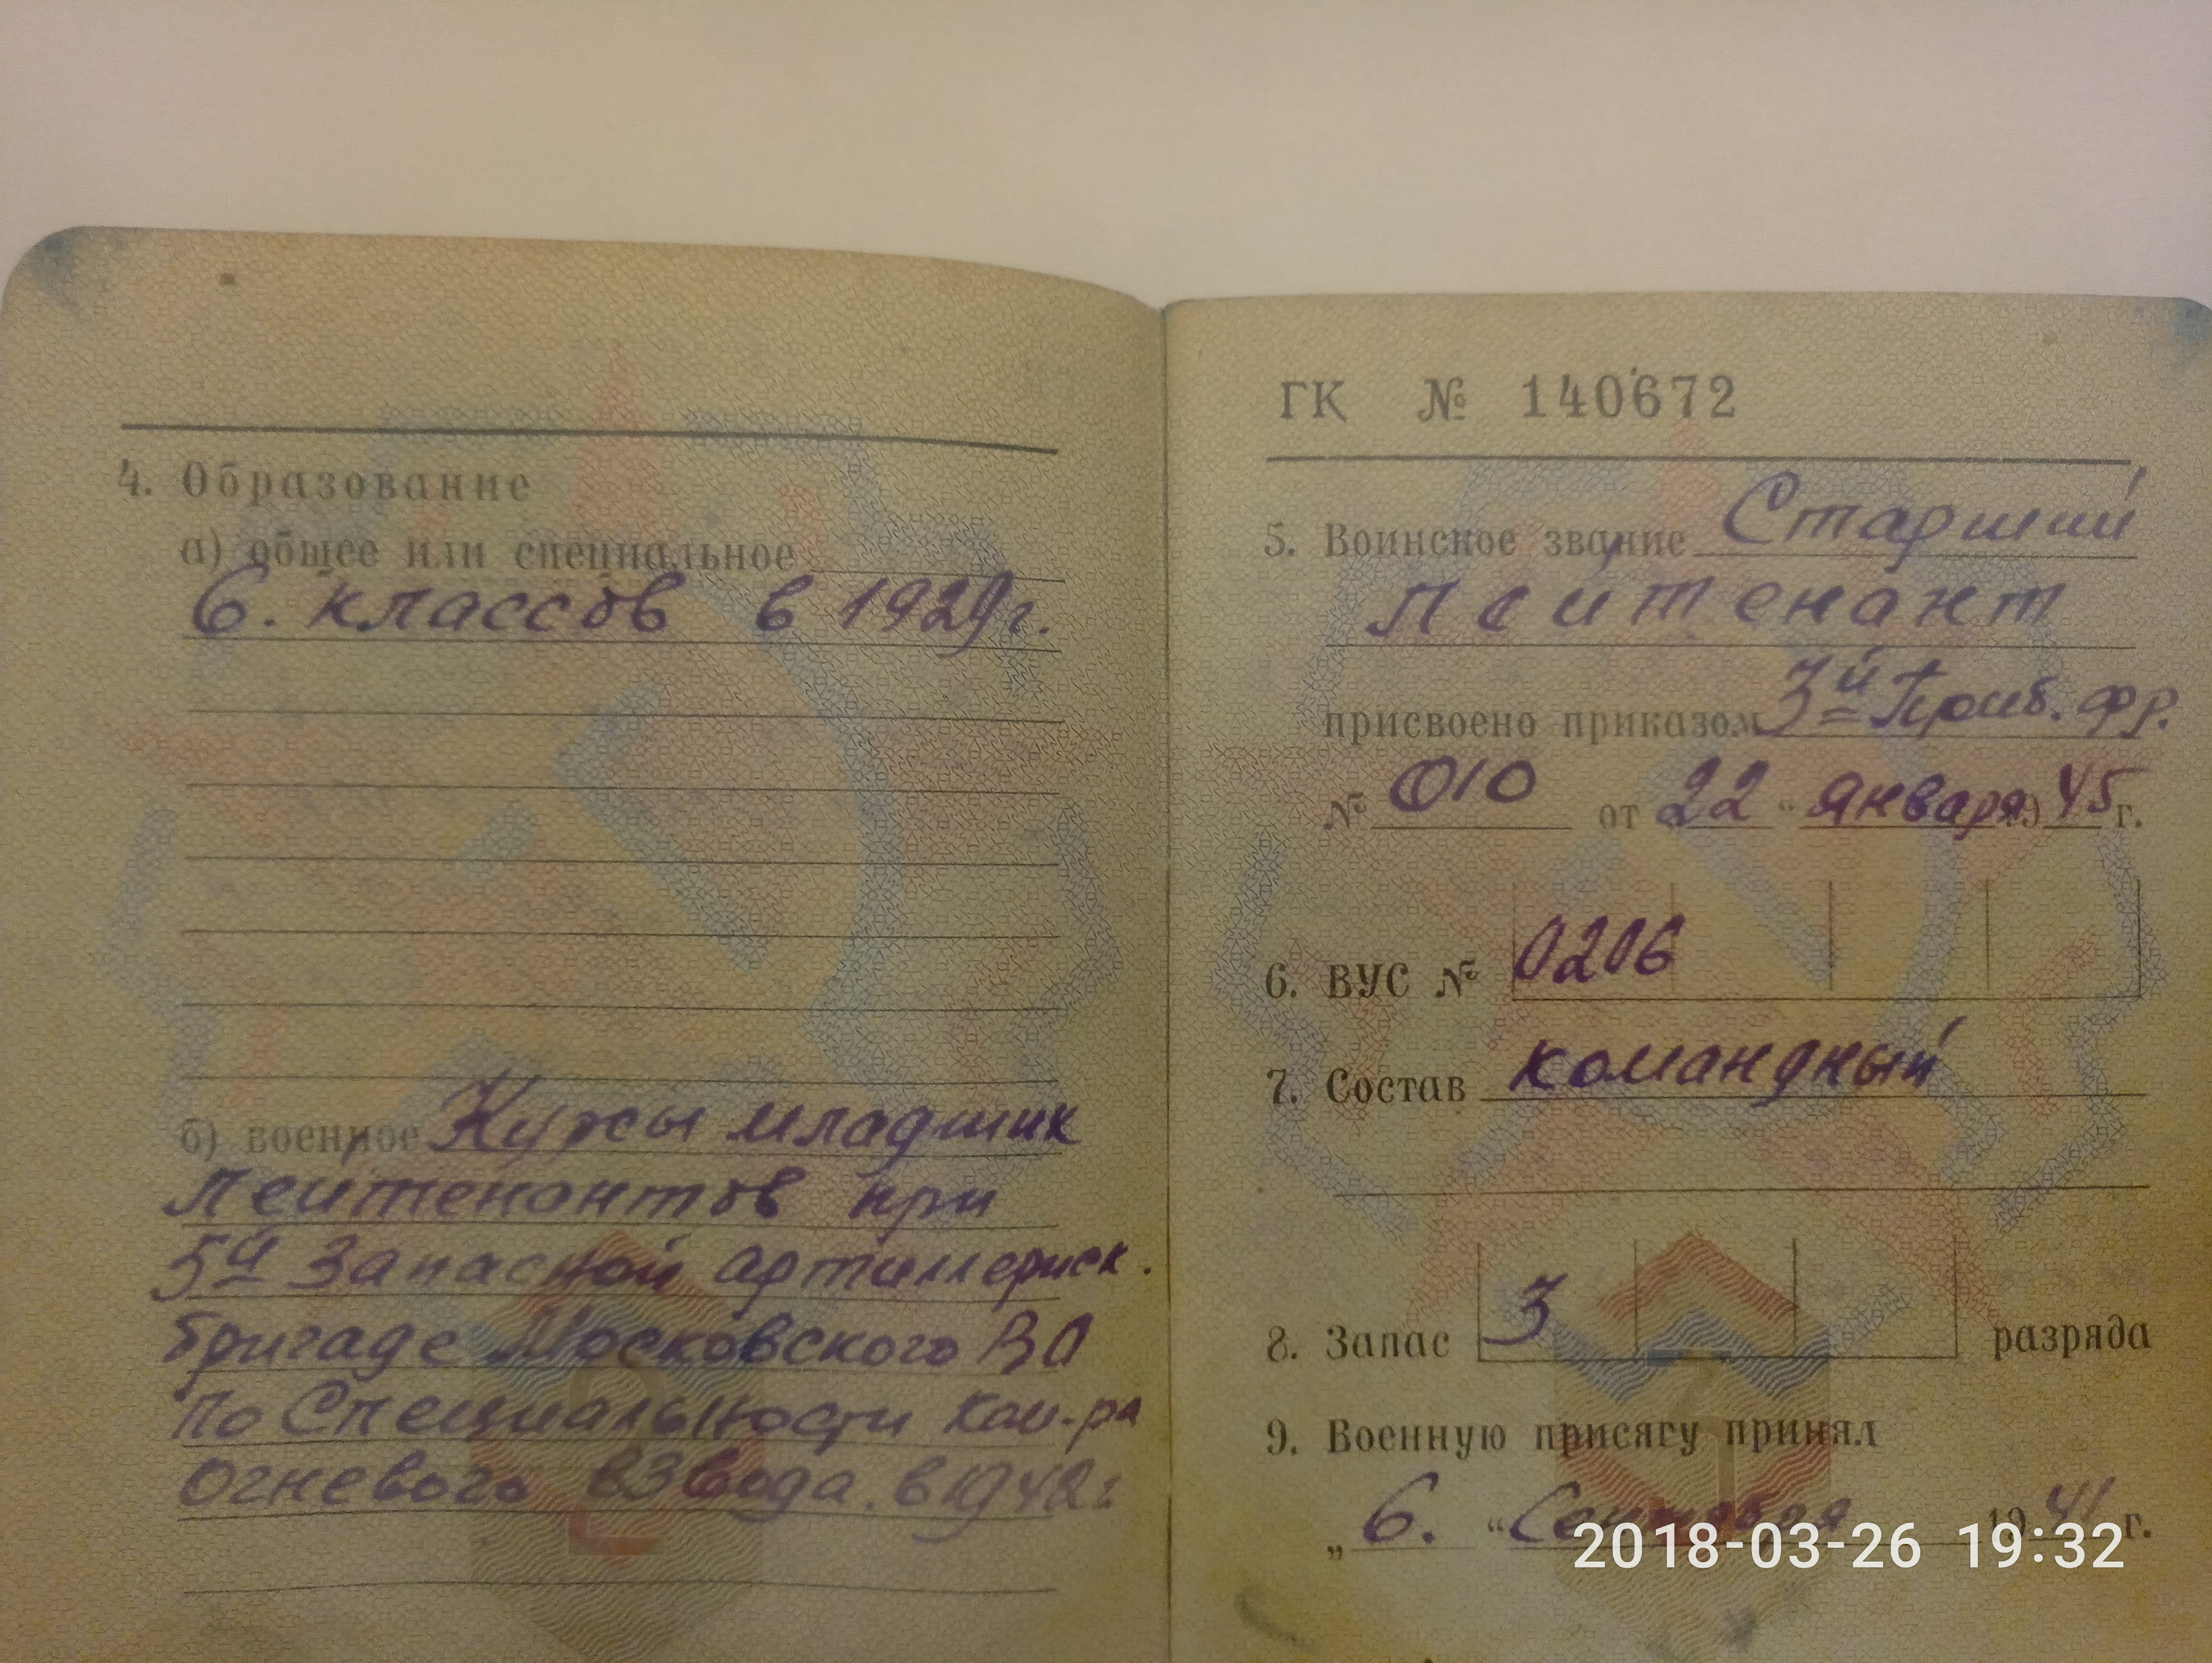 4. Образование
а) общее или специальное
6. классов в 1929г.
б) военное Курсы младших
Лейтенантов при
5й Запасной артиллериск.
бригаде Московского ВО
по Специальности Ком-ра
Огневого взвода. в 1942г
2
ГК № 140672
5. Воинское звание Старший
лейтенант
присвоено приказом 3й Приб. фр.
№ 010 от „22“ января 1945г.
6. ВУС № 0206
7. Состав командный
8. Запас 3 разряда
9. Военную присягу принял
„6.“ Сентября 1941г.
2018-03-26 19:32